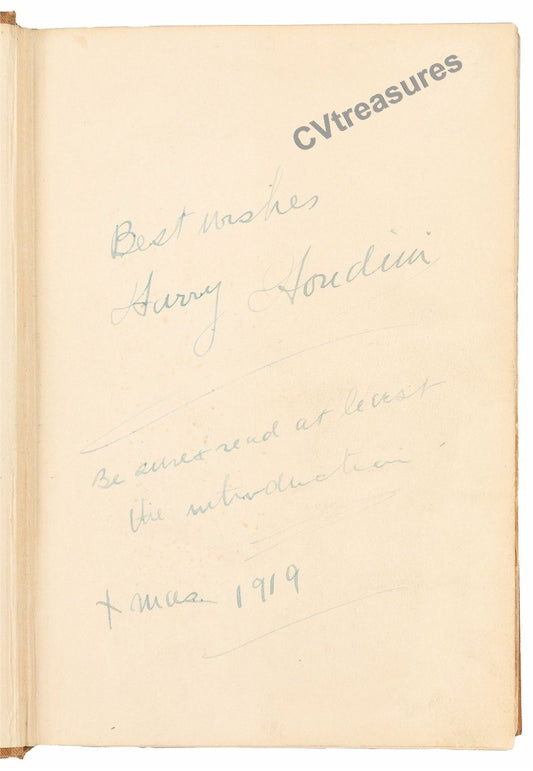 CVtreasures
Best wishes
Harry Houdini
Be sure & read at least
the introduction.
Xmas 1919